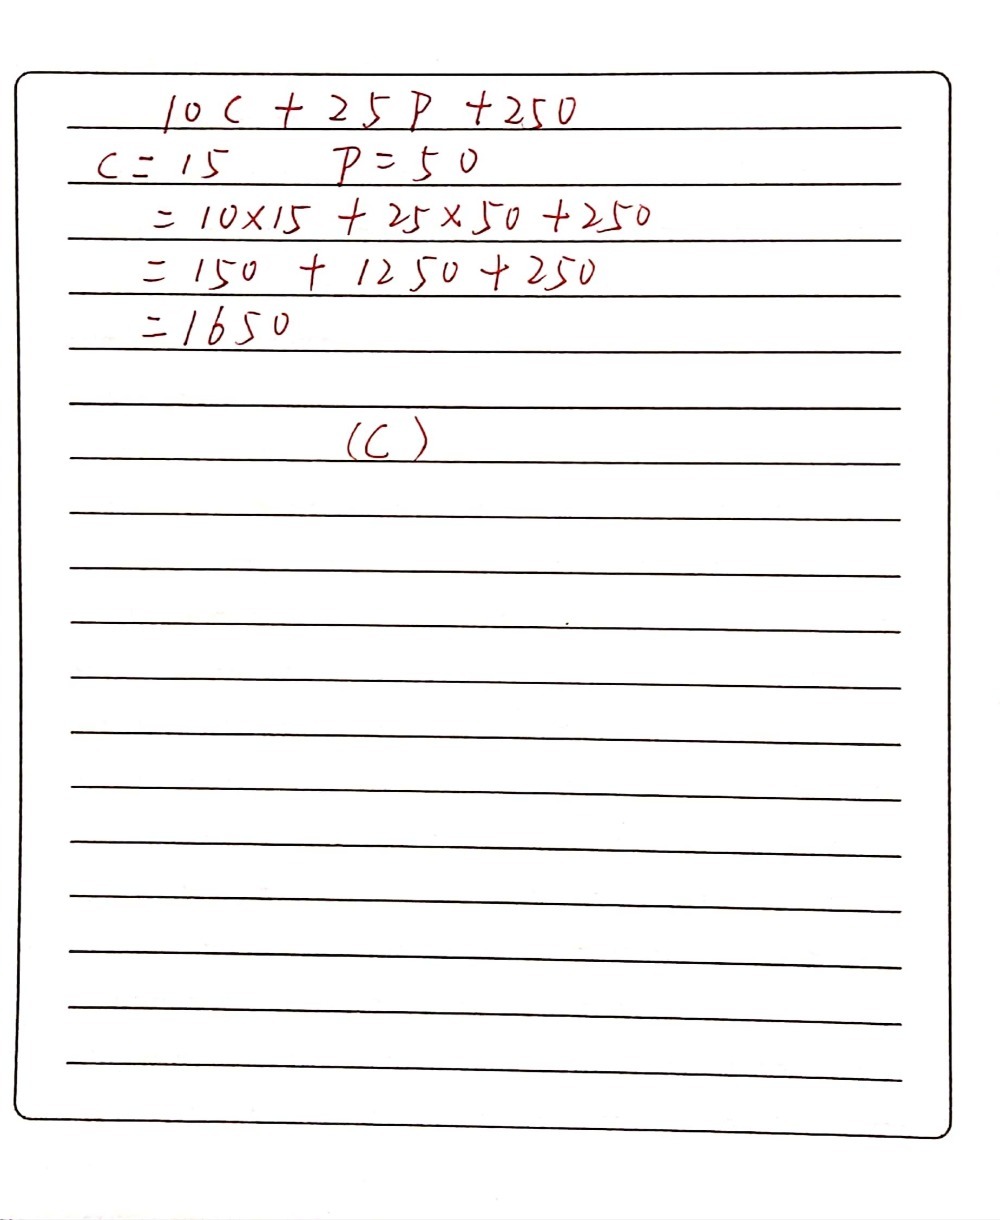 10C + 25P + 250
C = 15 P = 50
= 10×15 + 25×50 + 250
= 150 + 1250 + 250
= 1650
(C)